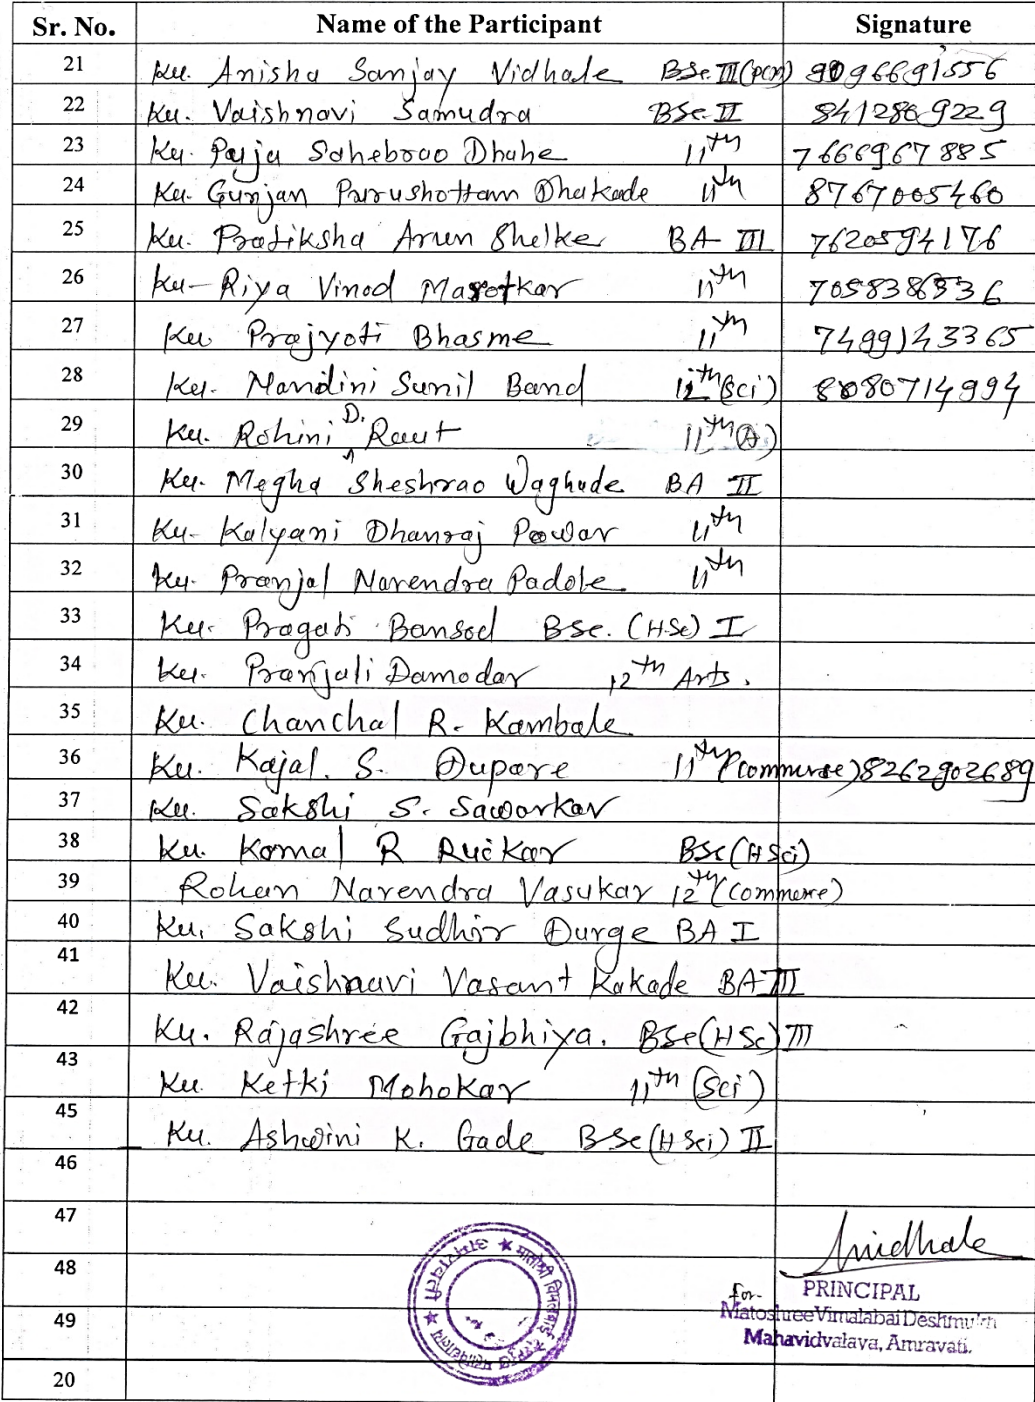 Sr. No. Name of the Participant Signature
21 Ku. Anisha Sanjay Vidhale BSc. III (PCM) 9096691556
22 Ku. Vaishnavi Samudra BSc II 8412869229
23 Ku. Puja Sahebrao Dhuhe 11th 7666967885
24 Ku. Gunjan Purushottam Dhakade 11th 8767005460
25 Ku. Pratiksha Arun Shelke BA III 7620594176
26 Ku- Riya Vinod Marotkar 11th 7058386536
27 Ku. Prajyoti Bhasme 11th 7499143365
28 Ku. Nandini Sunil Band 12th (Sci) 8080714994
29 Ku. Rohini D. Raut 11th (A)
30 Ku. Megha Sheshrao Waghade BA II
31 Ku- Kalyani Dhanraj Powar 11th
32 Ku. Pranjal Narendra Padole 11th
33 Ku. Pragati Bansod BSc. (H.Sc) I
34 Ku. Pranjali Damodar 12th Arts.
35 Ku. Chanchal R. Kambale
36 Ku. Kajal. S. Dupare 11th (commerse) 8262902689
37 Ku. Sakshi S. Sawarkar
38 Ku. Komal R Ruikar BSc (H Sci)
39 Rohan Narendra Vasukar 12th (Commerse)
40 Ku. Sakshi Sudhir Durge BA I
41 Ku. Vaishnavi Vasant Kakade BA III
42 Ku. Rajashree Gajbhiya. BSc (H Sc) III
43 Ku. Ketki Mohokar 11th (Sci)
45 Ku. Ashwini K. Gade BSc (H Sci) II
46
47
48
49
20
Avidhale
for- PRINCIPAL
Matoshree Vimalabai Deshmukh
Mahavidyalaya, Amravati.